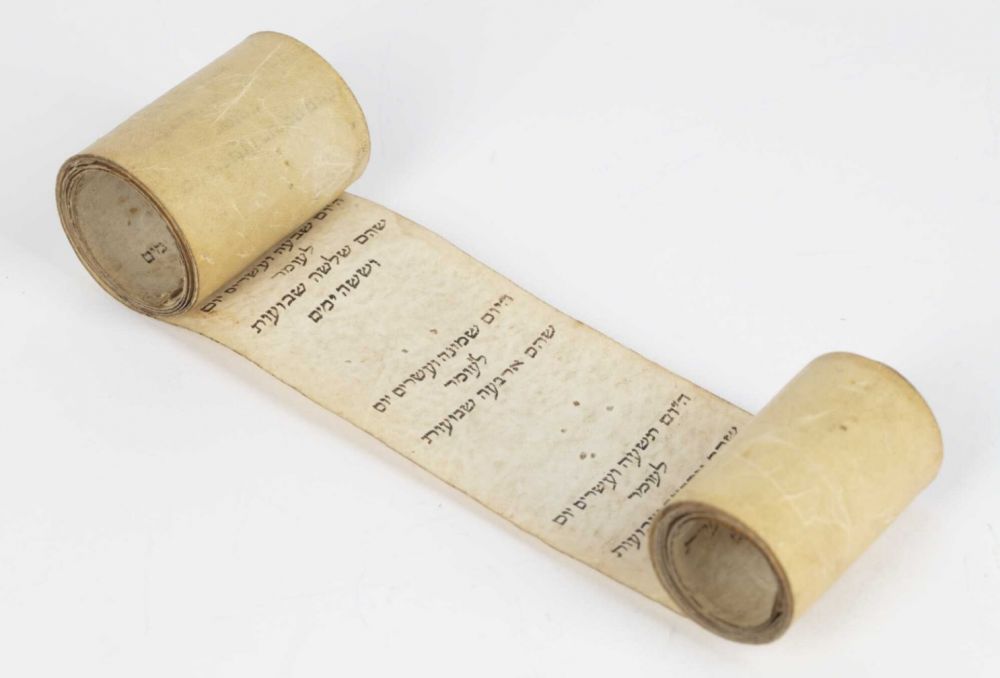 היום שבעה ועשרים יום
לעומר
שהם שלשה שבועות
וששה ימים
היום שמונה ועשרים יום
לעומר
שהם ארבעה שבועות
היום תשעה ועשרים יום
לעומר
שהם